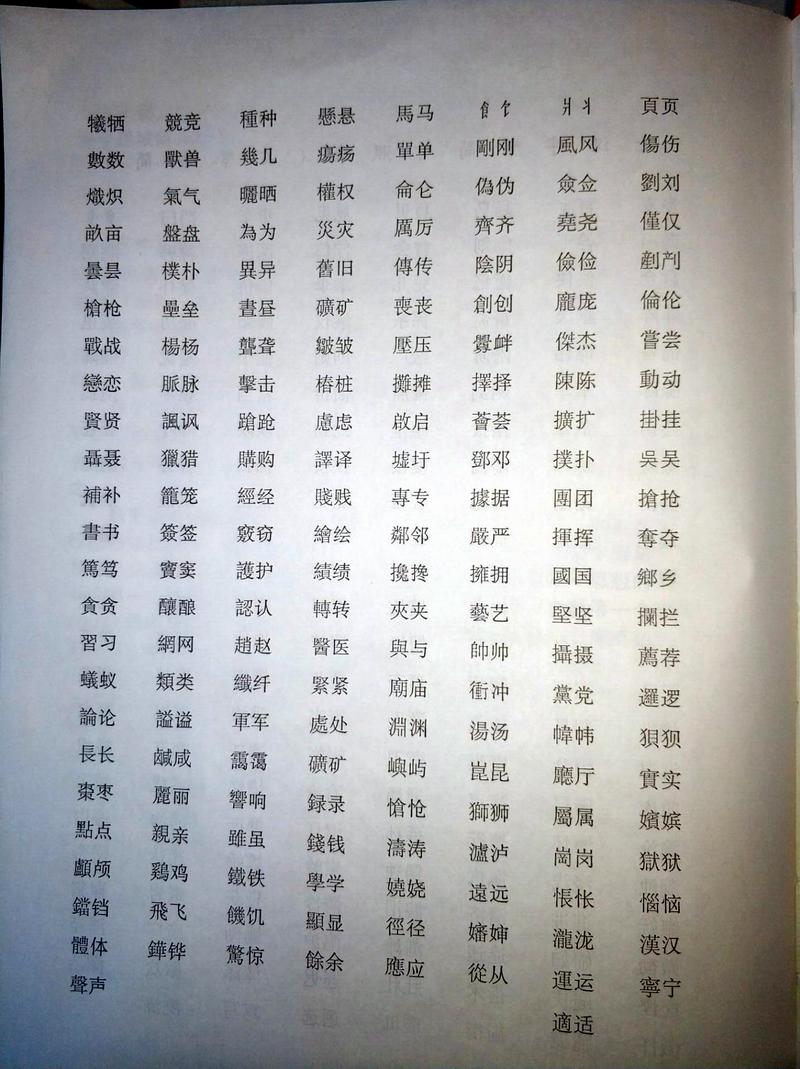 犧牺 競竞 種种 懸悬 馬马 飠饣 爿丬 頁页
數数 獸兽 幾几 瘍疡 單单 剛刚 風风 傷伤
熾炽 氣气 曬晒 權权 侖仑 偽伪 僉佥 劉刘
畝亩 盤盘 為为 災灾 厲厉 齊齐 堯尧 僅仅
曇昙 樸朴 異异 舊旧 傳传 陰阴 儉俭 剷
槍枪 壘垒 晝昼 礦矿 喪丧 創创 龐庞 倫伦
戰战 楊杨 聾聋 皺皱 壓压 釁衅 傑杰 嘗尝
戀恋 脈脉 擊击 樁桩 攤摊 擇择 陳陈 動动
賢贤 諷讽 蹌跄 慮虑 啟启 薈荟 擴扩 掛挂
聶聂 獵猎 購购 譯译 墟圩 鄧邓 撲扑 吳吴
補补 籠笼 經经 賤贱 專专 據据 團团 搶抢
書书 簽签 竅窃 繪绘 鄰邻 嚴严 揮挥 奪夺
篤笃 竇窦 護护 績绩 攙搀 擁拥 國国 鄉乡
貪贪 釀酿 認认 轉转 夾夹 藝艺 堅坚 攔拦
習习 網网 趙赵 醫医 與与 帥帅 攝摄 薦荐
蟻蚁 類类 纖纤 緊紧 廟庙 衝冲 黨党 邏逻
論论 謚谥 軍军 處处 淵渊 湯汤 幃帏 狽狈
長长 鹹咸 靄霭 礦矿 嶼屿 崑昆 廳厅 實实
棗枣 麗丽 響响 録录 愴怆 獅狮 屬属 嬪嫔
點点 親亲 雖虽 錢钱 濤涛 瀘泸 崗岗 獄狱
顱颅 鷄鸡 鐵铁 學学 嬈娆 遠远 悵怅 惱恼
鐺铛 飛飞 饑饥 顯显 徑径 嬸婶 瀧泷 漢汉
體体 鏵铧 驚惊 餘余 應应 從从 運运 寧宁
聲声 適适